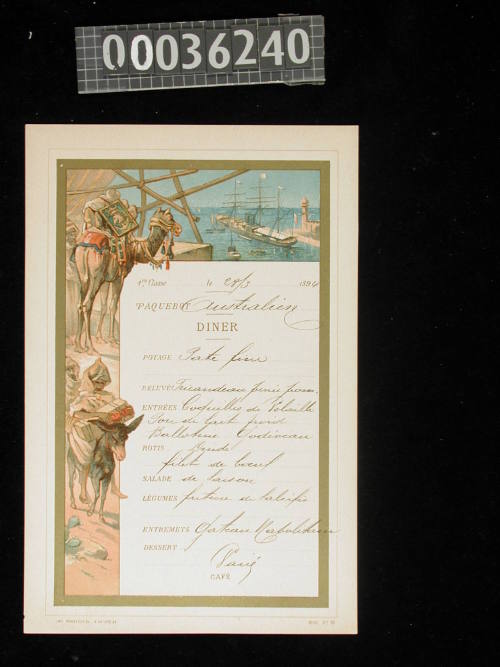 00036240
1re Classe le 28/3 1894
PAQUEBOT Australien
DINER
POTAGE Pate fine
RELEVÉ Fricandeau
ENTRÉES Coquilles de Volaille
froid
Ballotine Godiveau
ROTIS Dinde
filet de boeuf
SALADE de saison
LÉGUMES friture de salsifis
ENTREMETS Gateau Napolitain
DESSERT Varié
CAFÉ